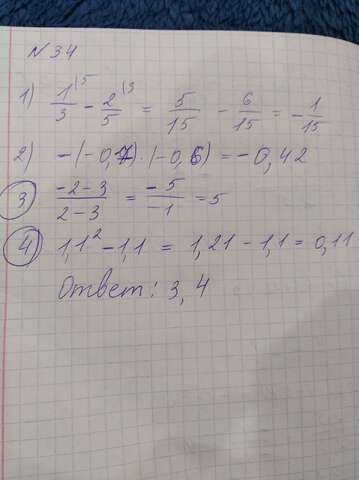 N 34
1) 1/3 |5 - 2/5 |3 = 5/15 - 6/15 = -1/15
2) -(-0,7)·(-0,6) = -0,42
3) -2-3/2-3 = -5/-1 = 5
4) 1,1² - 1,1 = 1,21 - 1,1 = 0,11
Ответ: 3, 4